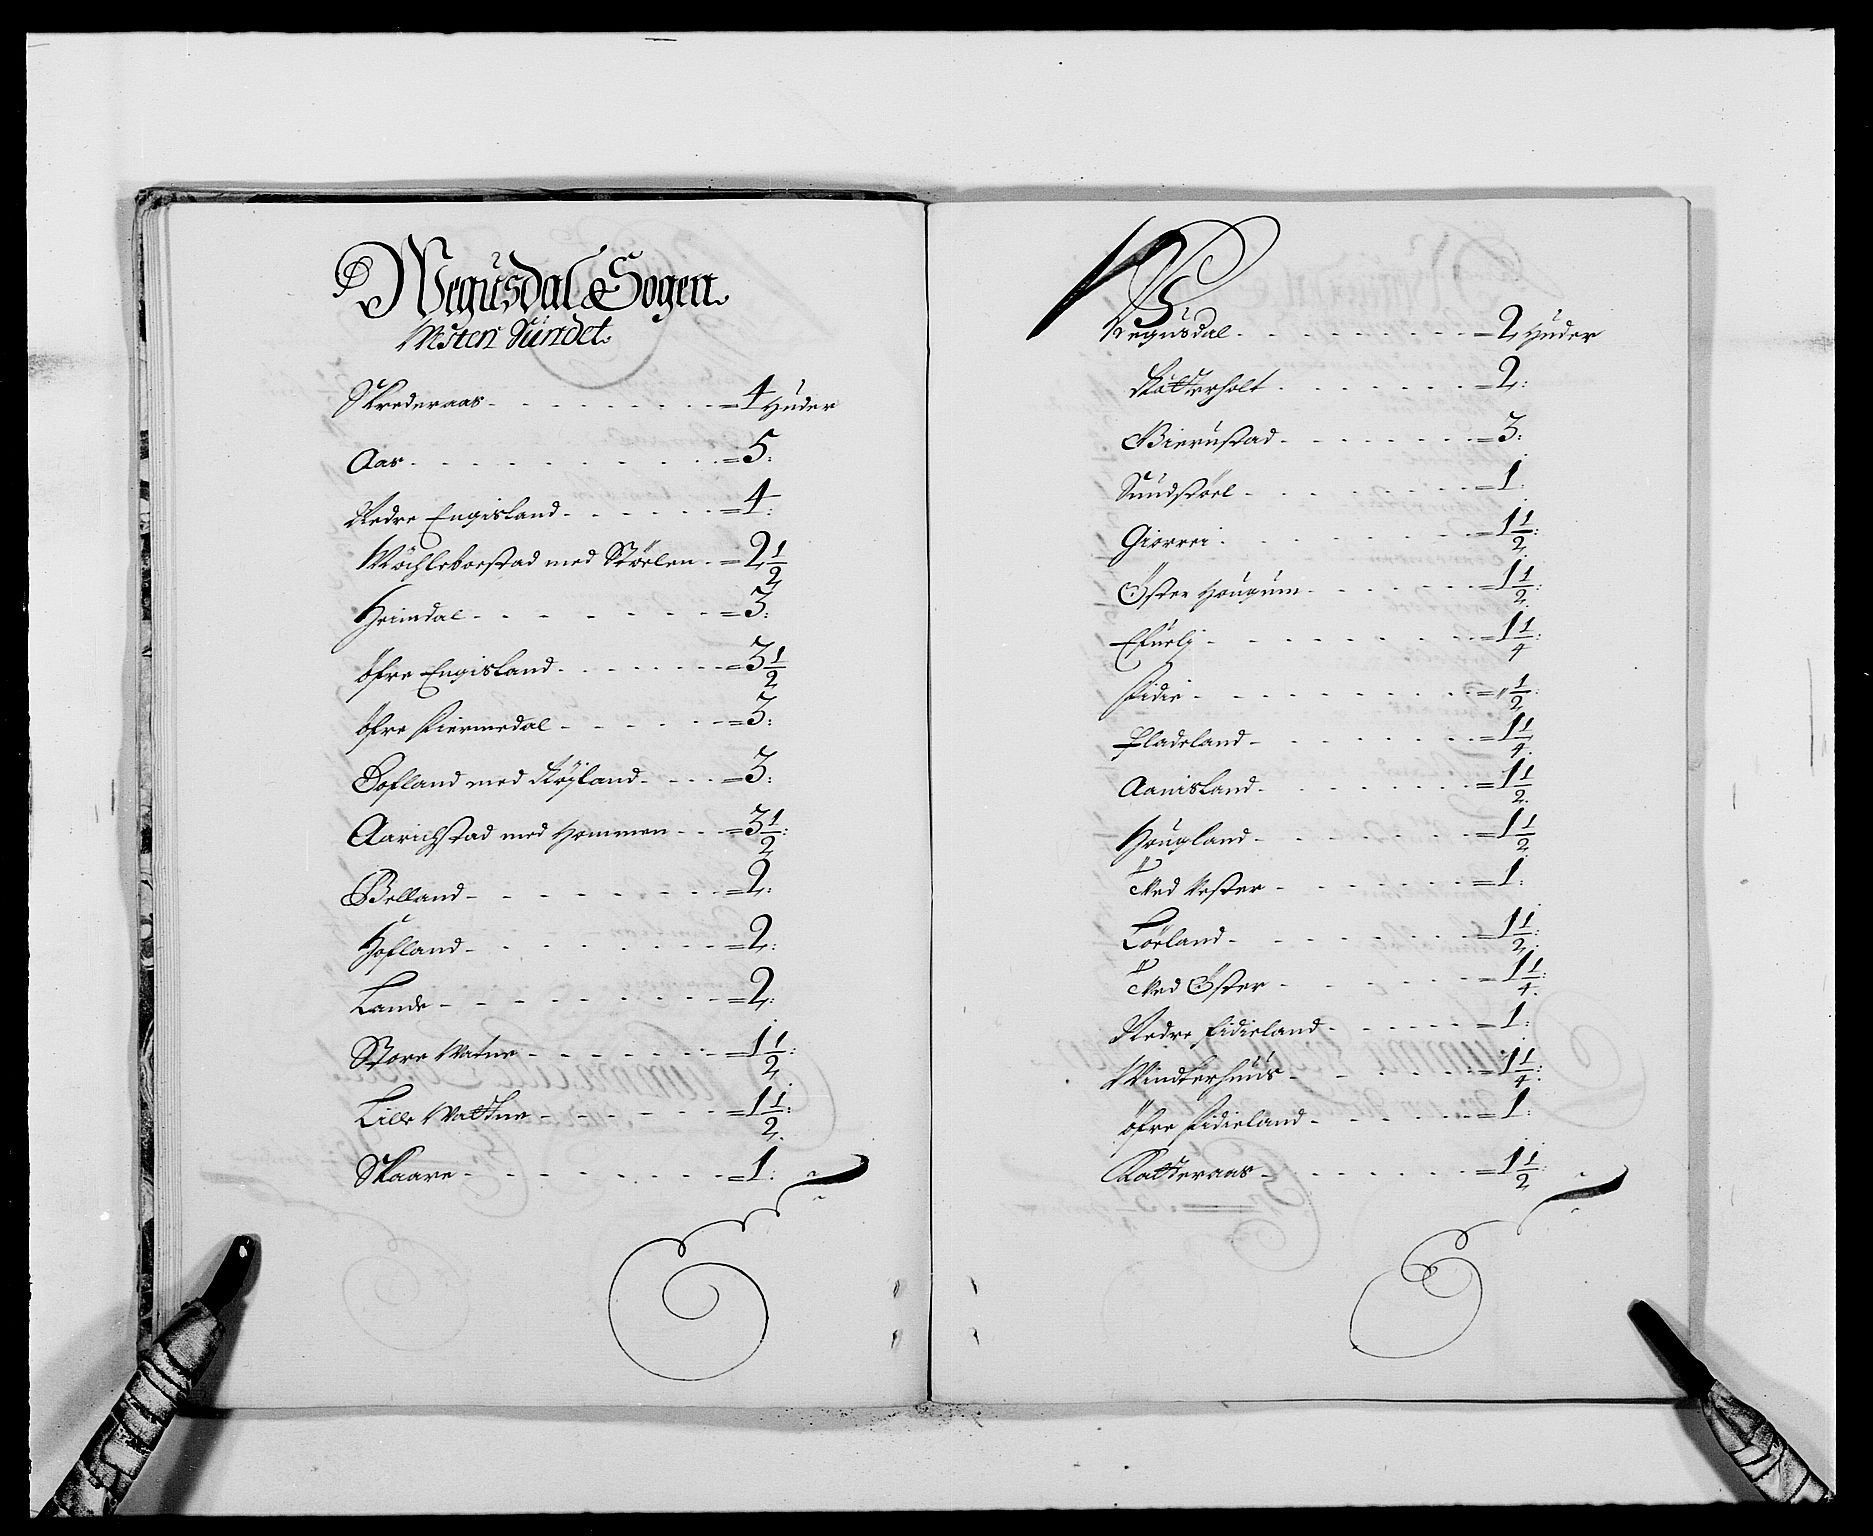 Wegusdal Sogen.
Westen Sundet.
Skrederaas - 4 Huder
Aas - 5:
Nedre Engisland - 4:
Møchleboestad med Støelen - 2 1/2
Heimdal - 3:
Øfre Engisland - 3 1/2
Øfre Fiermedal - 3:
Dofland med Røyland - 3:
Aarichstad med Hommen - 3 1/2:
Belland - 2:
Hofland - 2:
Lande - 2:
Store Watne - 1 1/2:
Lille Wattne - 1 1/2:
Skaare - 1:
Wegusdal - 2 Huder
Kåtterholt - 2:
Bierustad - 3:
Sundstøel - 1
Giorrei - 1 1/2:
Øster Hougum - 1 1/2:
Efuelj - 1 1/4:
Eidie - " 1/2:
Fladeland - 1 1/4
Aanisland - 1 1/2:
Hougland - 1 1/2
Ned Vester - 1:
Løeland - 1 1/2:
Ned Øster - 1 1/4:
Nedre Eidieland - 1:
Windterhuus - 1 1/4:
Øfre Eidieland - 1:
Ratteraas - 1 1/2: